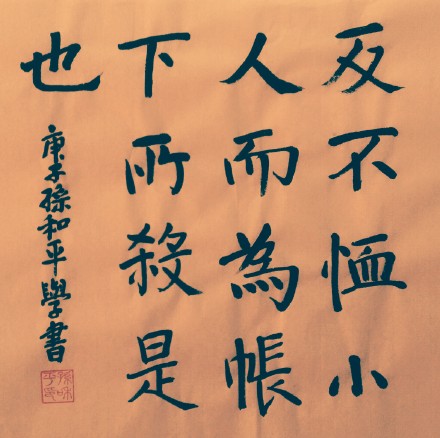 反不恤小
人而為帳
下所殺是
也
庚子孫和平學書
孫和平印